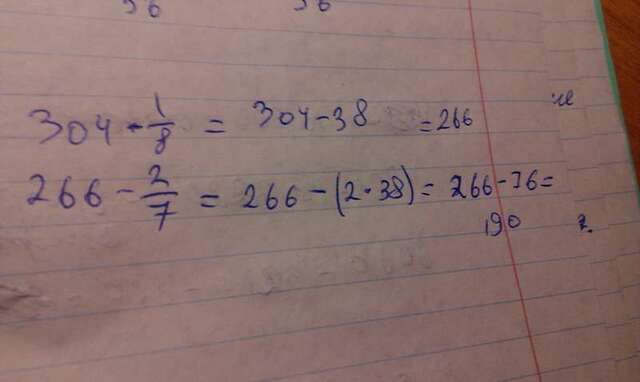 36 36
304 - 1/8 = 304 - 38 = 266
266 - 2/7 = 266 - (2 · 38) = 266 - 76 =
190